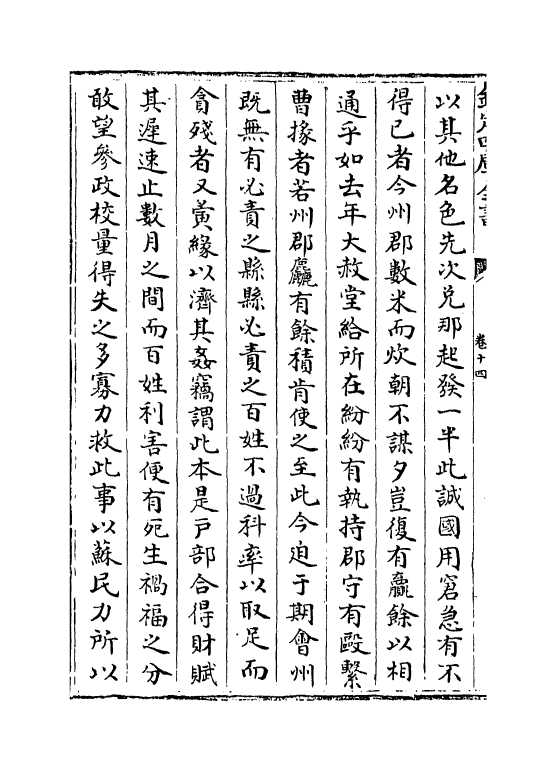 欽定四庫全書
卷十四
以其他名色先次兌那起發一半此誠國用窘急有不
得已者今州郡數米而炊朝不謀夕豈復有贏餘以相
通乎如去年大赦堂給所在紛紛有執持郡守有毆繫
曹掾者若州郡麤有餘積肯使之至此今迫于期會州
既無有必責之縣縣必責之百姓不過科率以取足而
貪殘者又夤緣以濟其姦竊謂此本是戸部合得財賦
其遲速止數月之間而百姓利害便有死生禍福之分
敢望參政校量得失之多寡力救此事以蘇民力所以